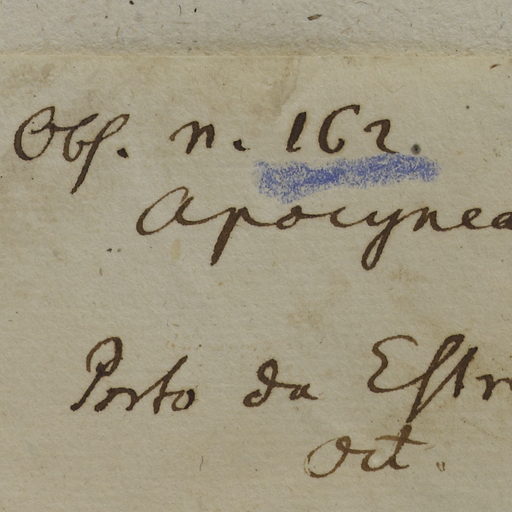 Obs. n. 162.
Apocynea
Porto da Estr
Oct.